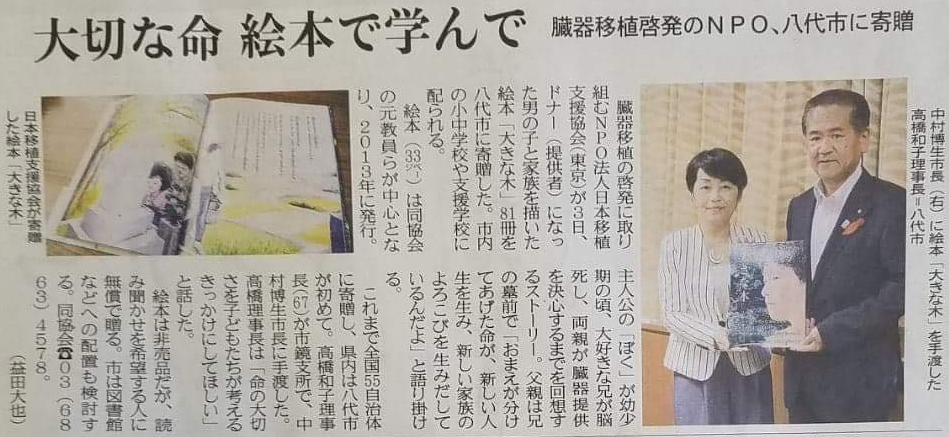 大切な命 絵本で学んで
臓器移植啓発のＮＰＯ、八代市に寄贈
臓器移植の啓発に取り
組むＮＰＯ法人日本移植
支援協会（東京）が３日、
ドナー（提供者）になっ
た男の子と家族を描いた
絵本「大きな木」81冊を
八代市に寄贈した。市内
の小中学校や支援学校に
配られる。
絵本（33㌻）は同協会
の元教員らが中心とな
り、２０１３年に発行。
主人公の「ぼく」が幼少
期の頃、大好きな兄が脳
死し、両親が臓器提供
を決心するまでを回想す
るストーリー。父親は兄
の墓前で「おまえが分け
てあげた命が、新しい人
生を生み、新しい家族の
よろこびを生みだして
いるんだよ」と語り掛け
る。
これまで全国55自治体
に寄贈し、県内は八代市
が初めて。高橋和子理事
長（67）が市鏡支所で、中
村博生市長に手渡した。
高橋理事長は「命の大切
さを子どもたちが考える
きっかけにしてほしい」
と話した。
絵本は非売品だが、読
み聞かせを希望する人に
無償で贈る。市は図書館
などへの配置も検討す
る。同協会☎０３（６８
６３）４５７８。
（益田大也）
日本移植支援協会が寄贈
した絵本「大きな木」
中村博生市長（右）に絵本「大きな木」を手渡した
高橋和子理事長＝八代市